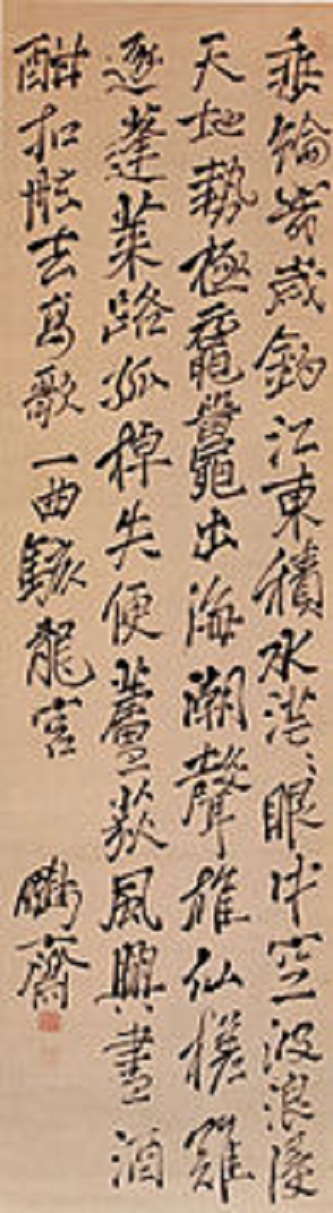 垂綸幾歳釣江東積水茫々眼中空波浪浸
天地勢極黿鼉出海潮聲雄仙槎難
逐蓬莱路孤棹失便蘆荻風興盡酒
酣扣舷去高歌一曲駭龍宮
鵬齋